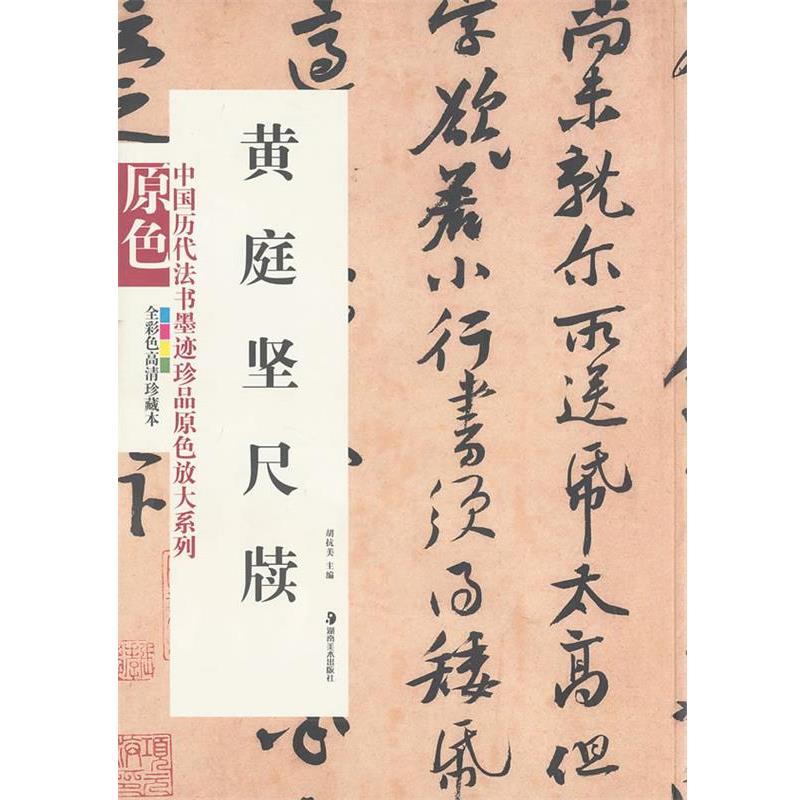 黄庭坚尺牍
中国历代法书墨迹珍品原色放大系列
原色
全彩色高清珍藏本
胡抗美 主编
湖南美术出版社
尚未就尔所送纸太高但
字欲若小行书须得矮纸
卞